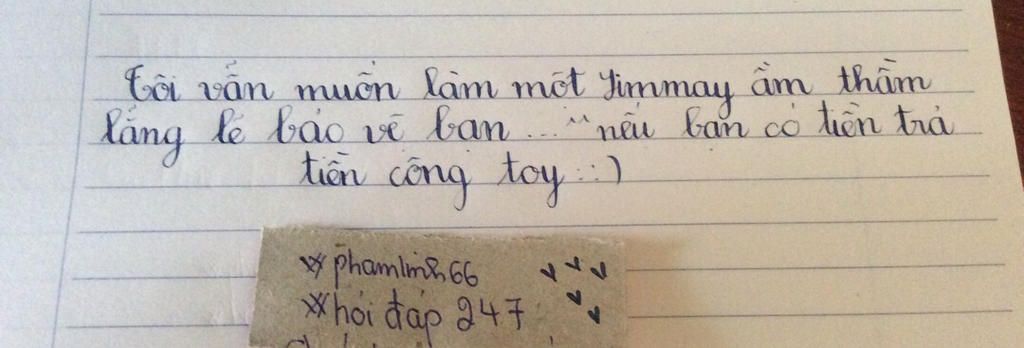 Tôi vẫn muốn làm một Jimmay âm thầm
lẳng lẽ bảo vệ bạn ... "nếu bạn có tiền trả
tiền công toy ::)
phamlinh66
hỏi đáp 247